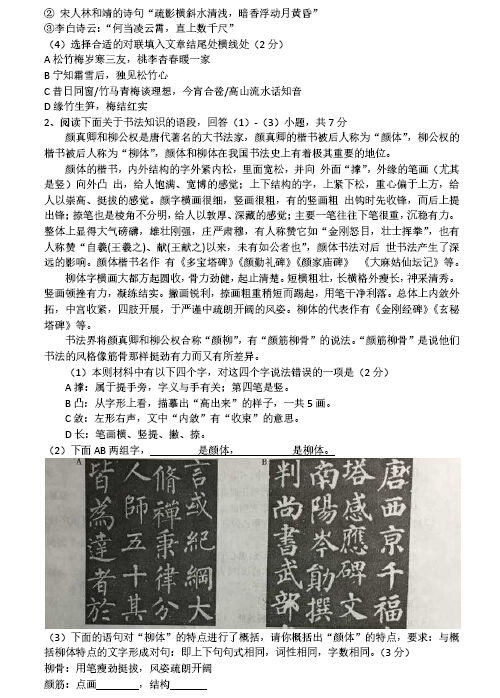 ② 宋人林和靖的诗句“疏影横斜水清浅，暗香浮动月黄昏”
③李白诗云：“何当凌云霄，直上数千尺”
（4）选择合适的对联填入文章结尾处横线处（2 分）
A 松竹梅岁寒三友，桃李杏春暖一家
B 宁知霜雪后，独见松竹心
C 昔日同窗/竹马青梅谈理想，今宵合卺/高山流水话知音
D 缘竹生笋，梅结红实
2、阅读下面关于书法知识的语段，回答（1）-（3）小题，共 7 分
颜真卿和柳公权是唐代著名的大书法家，颜真卿的楷书被后人称为“颜体”，柳公权的
楷书被后人称为“柳体”，颜体和柳体在我国书法史上有着极其重要的地位。
颜体的楷书，内外结构的字外紧内松，里面宽松，并向 外面“撑”，外缘的笔画（尤其
是竖）向外凸 出，给人饱满、宽博的感觉；上下结构的字，上紧下松，重心偏于上方，给
人以崇高、挺拔的感觉。颜字横画很细，竖画很粗，有的竖画粗 出钩时先收锋，而后上提
出锋；捺笔也是棱角不分明，给人以敦厚、深藏的感觉；主要一笔往往下笔很重，沉稳有力。
整体上显得大气磅礴，雄壮刚强，庄严肃穆，有人称赞它如“金刚怒目，壮士挥拳”，也有
人称赞“自羲(王羲之)、献(王献之)以来，未有如公者也”，颜体书法对后 世书法产生了深
远的影响。颜体楷书名作 有《多宝塔碑》《颜勤礼碑》《颜家庙碑》 《大麻姑仙坛记》等。
柳体字横画大都方起圆收，骨力劲健，起止清楚。短横粗壮，长横格外瘦长，神采清秀。
竖画领挫有力，凝练结实。撇画锐利，捺画粗重稍短而踢起，用笔干净利落。总体上内敛外
拓，中宫收紧，四肢开展，于严谨中疏朗开阔的风姿。柳体的代表作有《金刚经碑》《玄秘
塔碑》等。
书法界将颜真卿和柳公权合称“颜柳”，有“颜筋柳骨”的说法。“颜筋柳骨”是说他们
书法的风格像筋骨那样挺劲有力而又有所差异。
（1）本则材料中有以下四个字，对这四个字说法错误的一项是（2 分）
A 撑：属于提手旁，字义与手有关；第四笔是竖。
B 凸：从字形上看，描摹出“高出来”的样子，一共 5 画。
C 敛：左形右声，文中“内敛”有“收束”的意思。
D 长：笔画横、竖提、撇、捺。
（2）下面 AB 两组字，________是颜体，________是柳体。
A
言或纪纲大
脩禅秉律分
人师五十其
皆为达者於
B
唐西京千福
塔感应碑文
南阳岑勋撰
判尚书武部
（3）下面的语句对“柳体”的特点进行了概括，请你概括出“颜体”的特点，要求：与概
括柳体特点的文字形成对句：即上下句句式相同，词性相同，字数相同。（3 分）
柳骨：用笔瘦劲挺拔，风姿疏朗开阔
颜筋：点画________，结构________